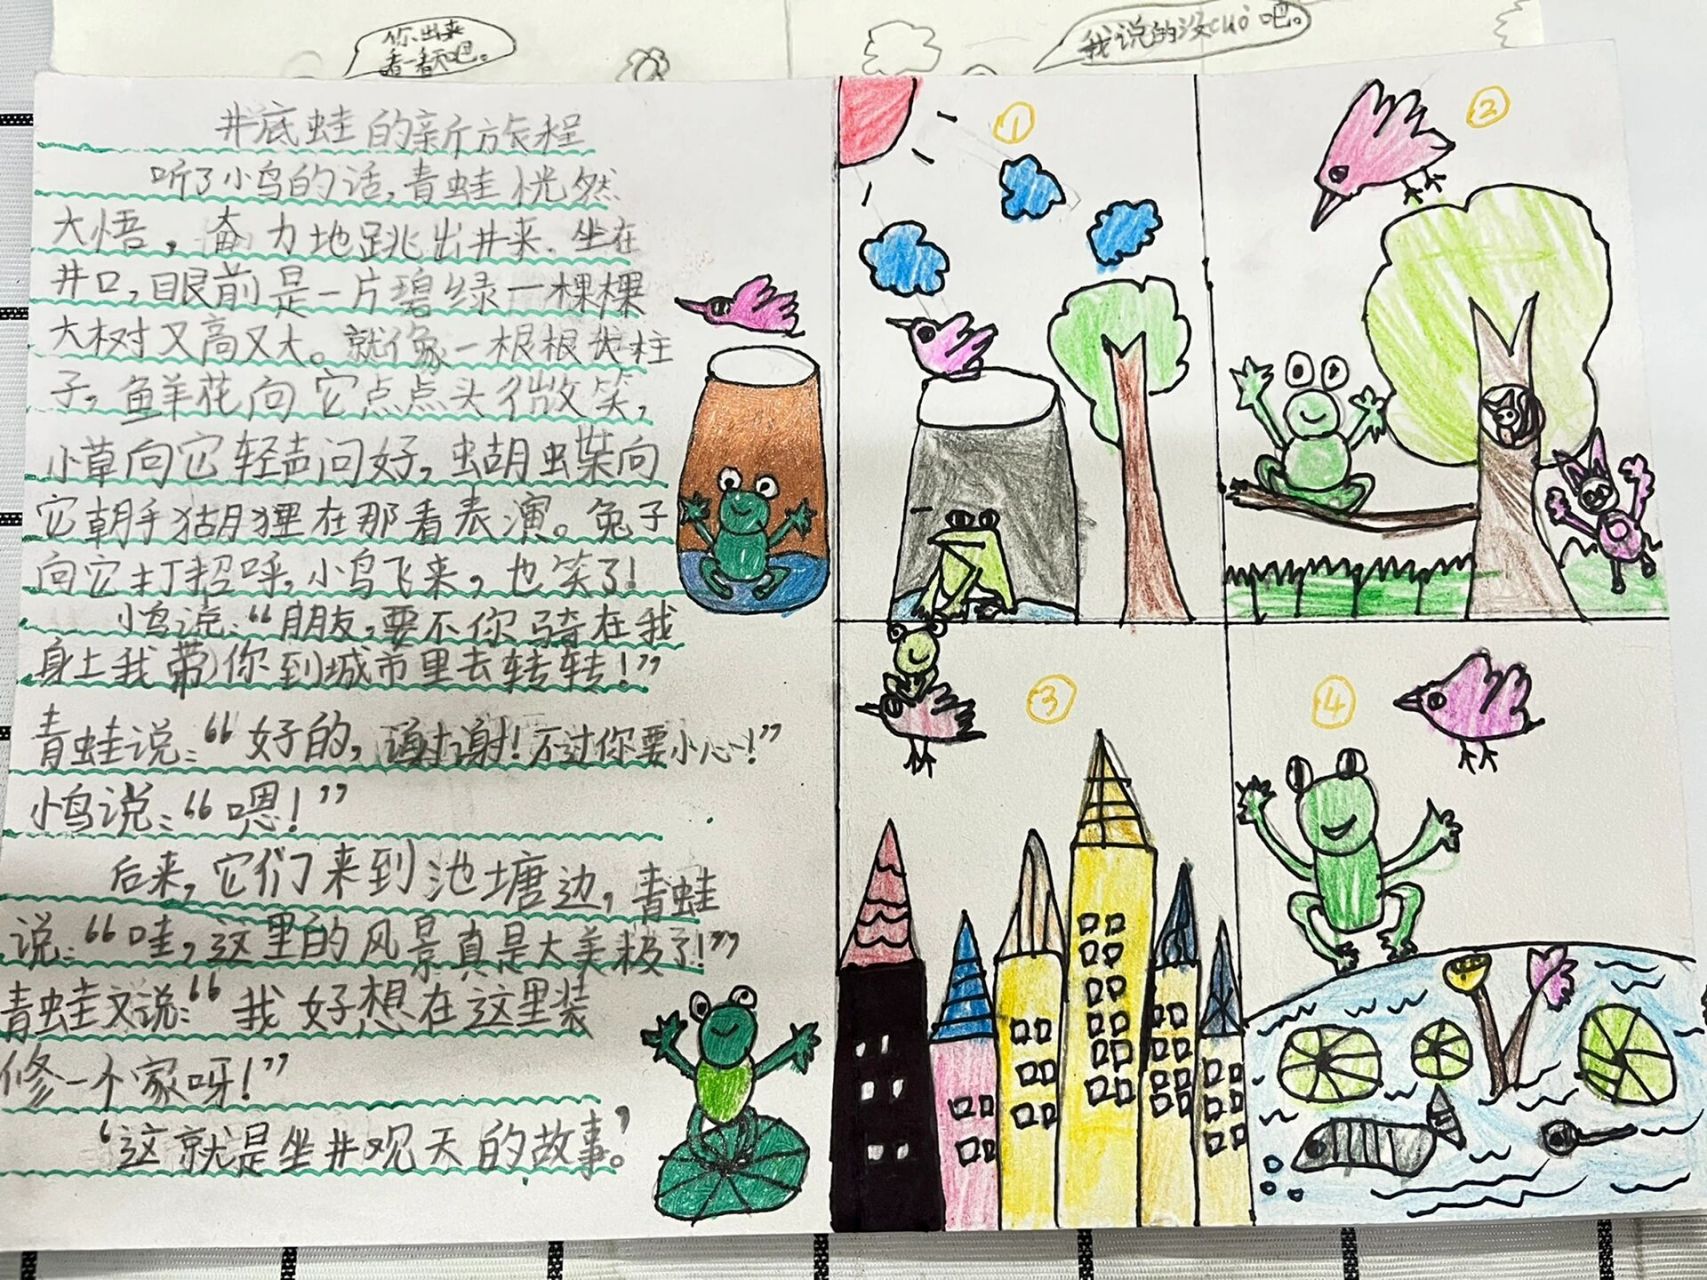 你出来
看一看吧。
我说的没cuò吧。
井底蛙的新旅程
听了小鸟的话,青蛙恍然
大悟,奋力地跳出井来.坐在
井口,眼前是一片碧绿一棵棵
大树又高又大。就像一根根大柱
子,鲜花向它点点头微笑,
小草向它轻声问好,蝴蝶向
它朝手狐狸在那看表演。兔子
向它打招呼,小鸟飞来,也笑了!
小鸟说:“朋友,要不你骑在我
身上我带你到城市里去转转!”
青蛙说:“好的,谢谢!不过你要小心!”
小鸟说:“嗯!”
后来,它们来到池塘边,青蛙
说:“哇,这里的风景真是太美极了!”
青蛙又说:“我好想在这里装
修一个家呀!”
‘这就是坐井观天的故事’。
①
②
③
④